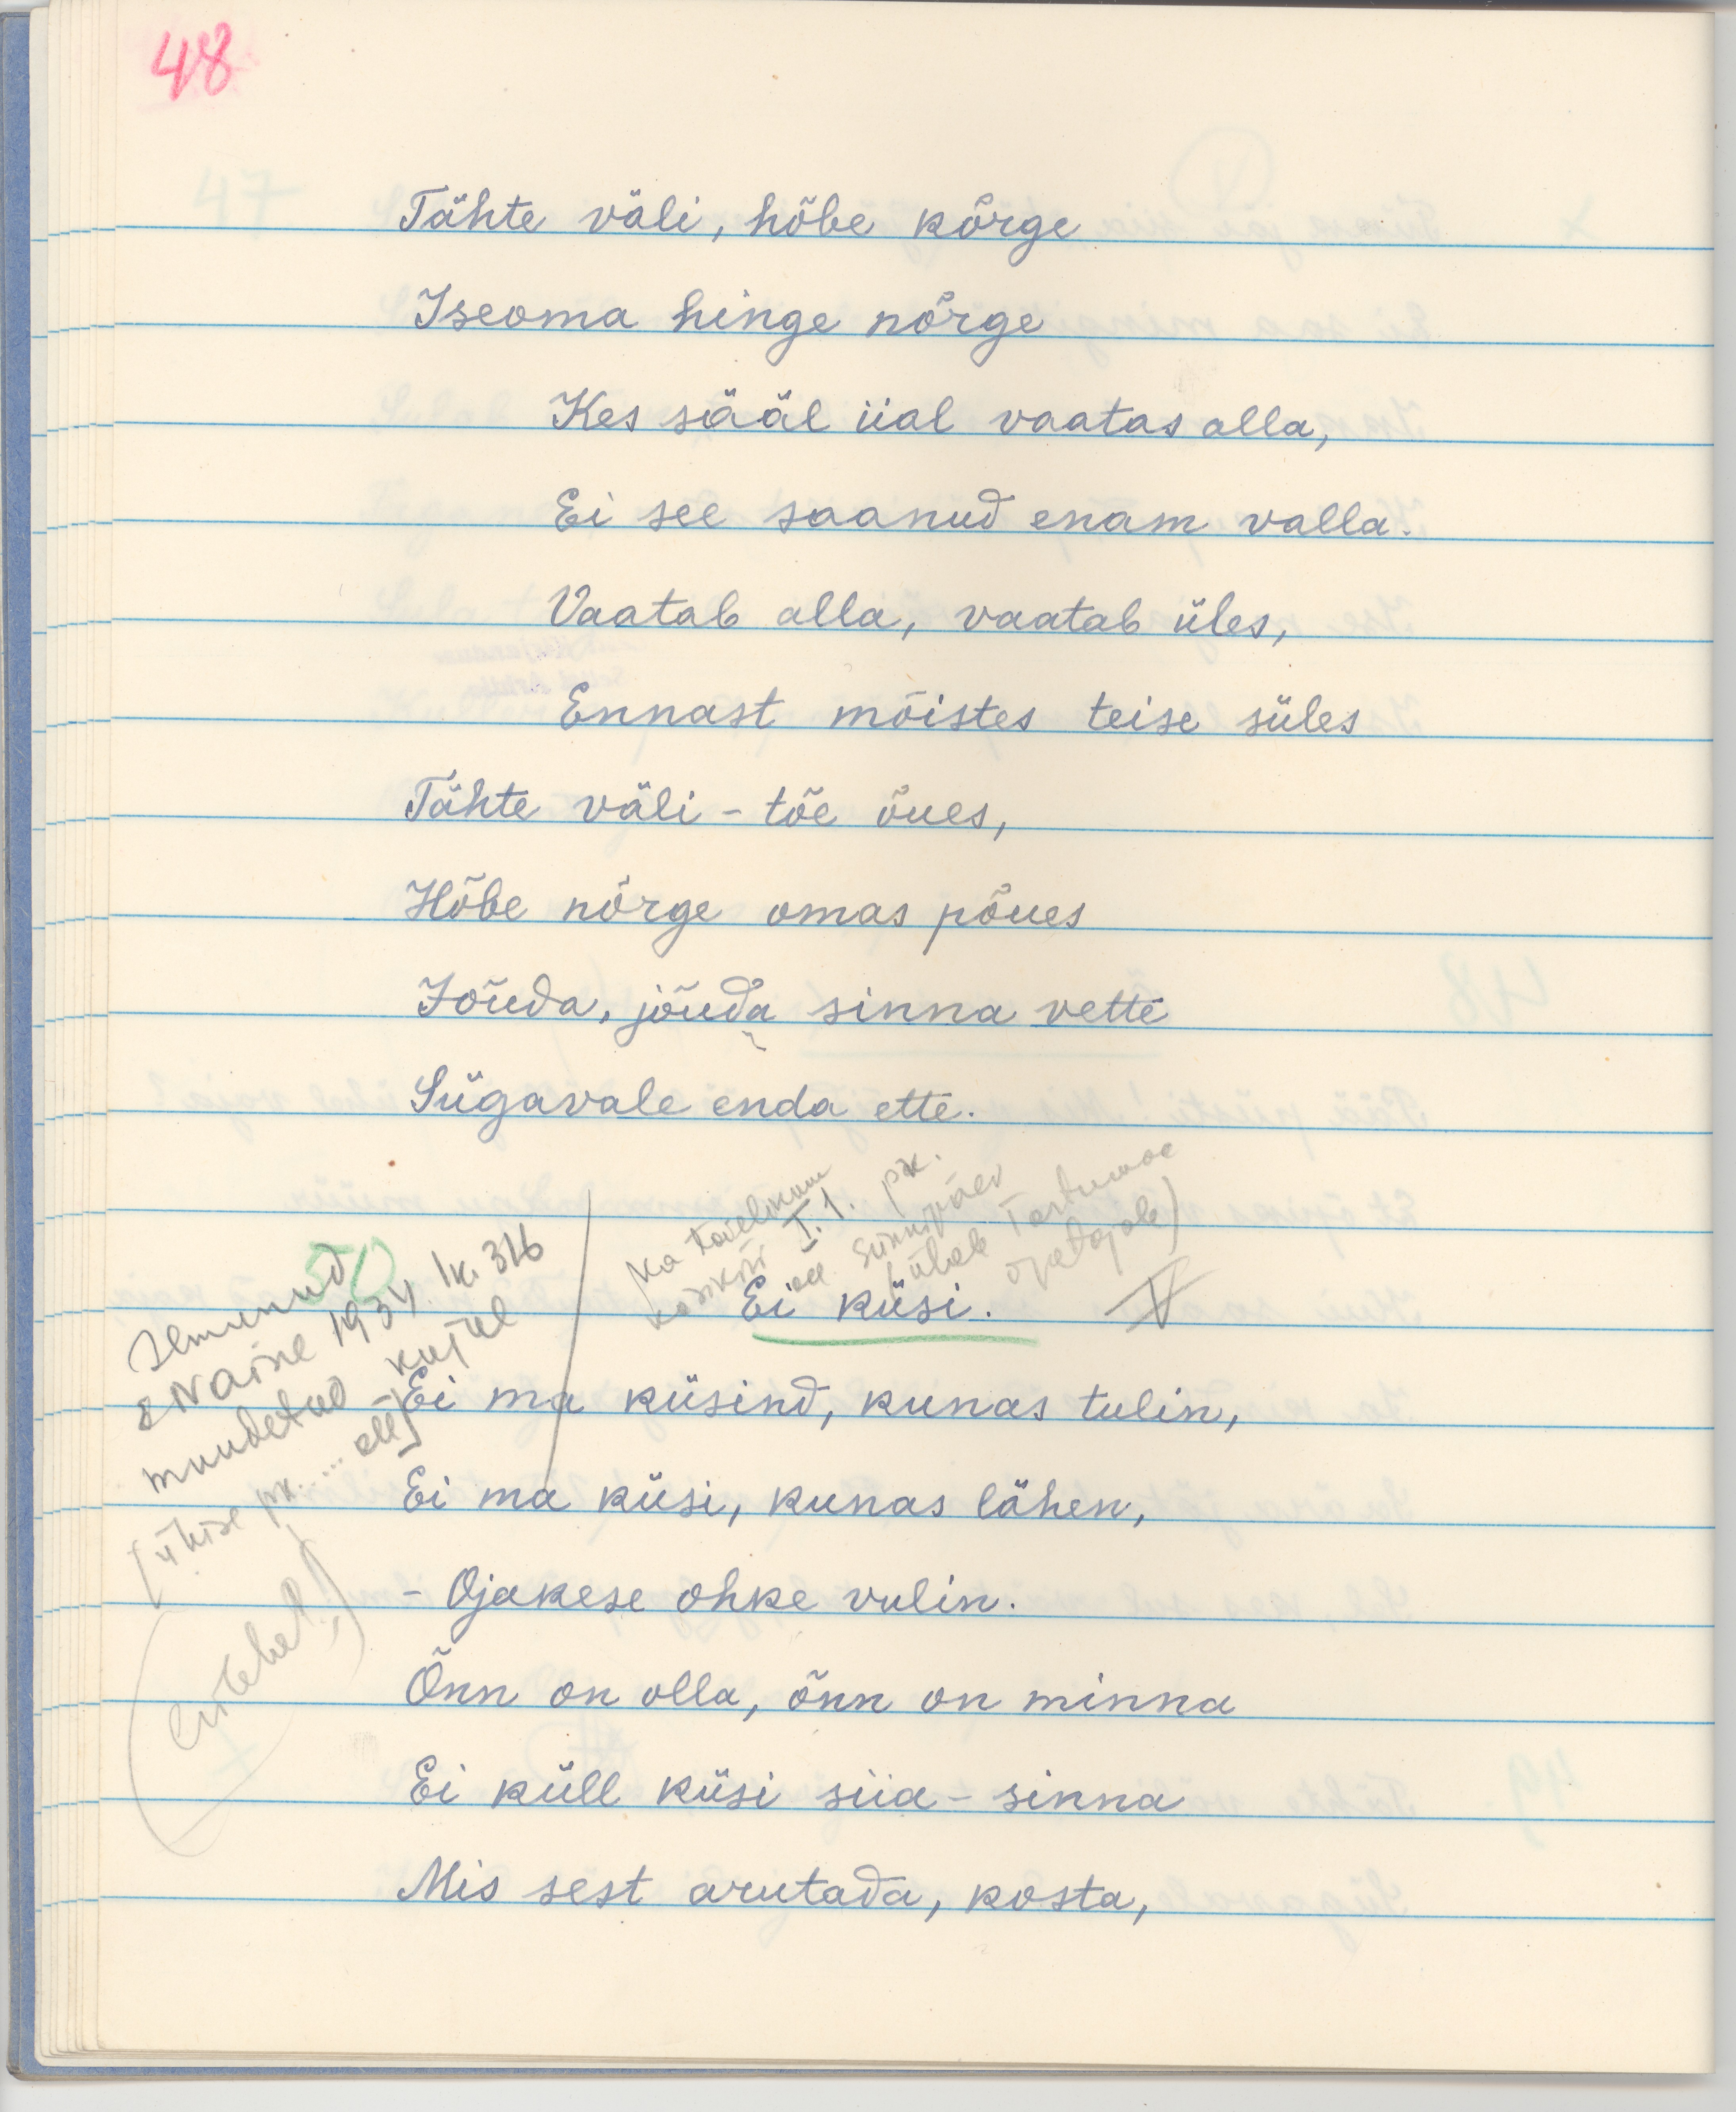 48
Tähte väli, hõbe kõrge
Iseoma hinge nõrge
Kes sääl iial vaatas alla,
Ei see saanud enam valla.
Vaatab alla, vaatab üles,
Ennast mõistes teise süles
Tähte väli - tõe õues,
Hõbe nõrge omas põues
Jõuda, jõuda sinna vette
Sügavale enda ette.
Ka täielikum
käsikiri I.1. pk.
all Sünnipäev
(ühele Tartumaa
õpetajale)
50
Ei küsi.
V
Ilmunud
E Naine 1934. lk. 316
muudetud kujul
[ühise pk. .... all]
Ei ma küsind, kunas tulin,
Ei ma küsi, kunas lähen,
- Ojakese ohke vulin.
Õnn on olla, õnn on minna
Ei küll küsi siia - sinna
Mis sest arutada, kosta,